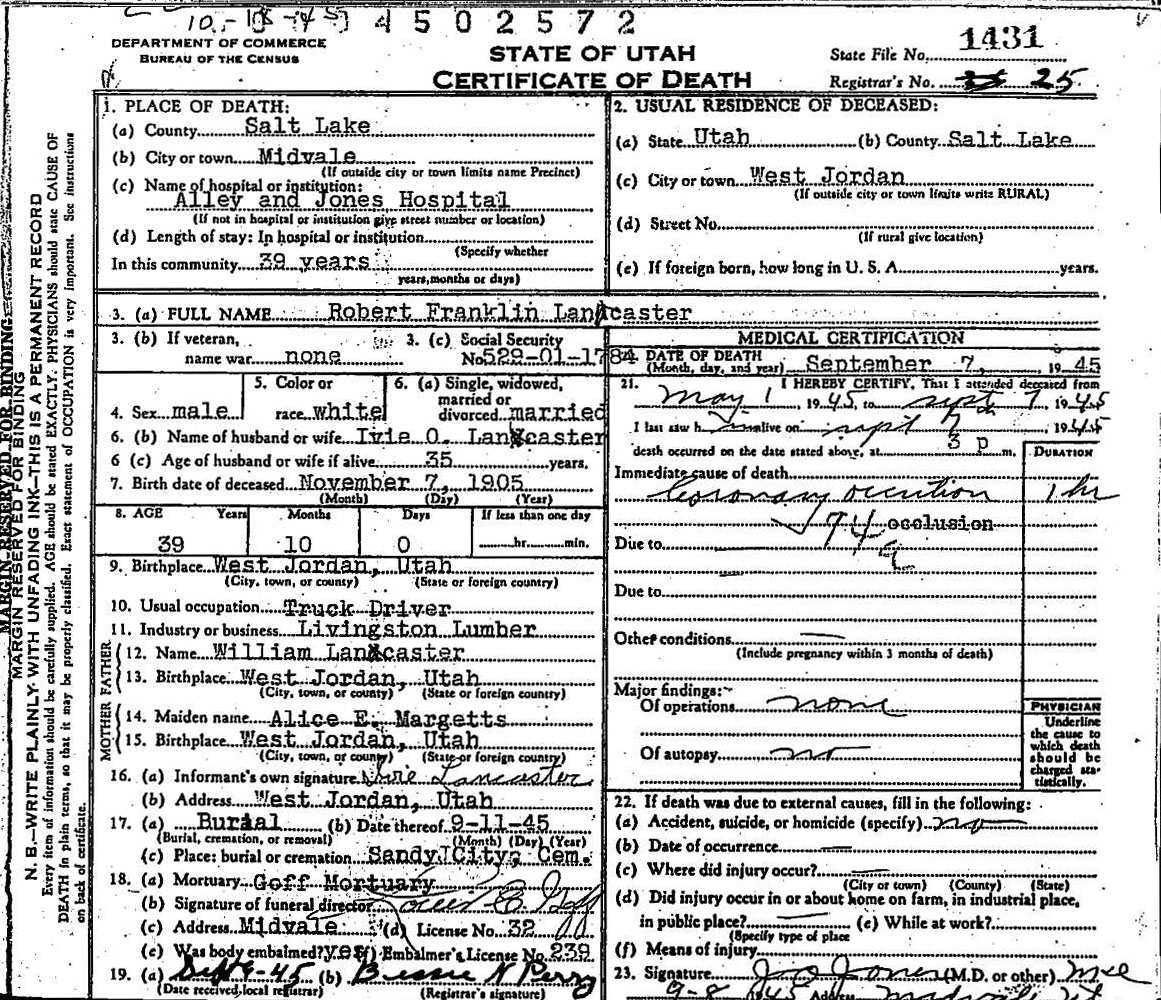 10-18-45 4502572
DEPARTMENT OF COMMERCE
BUREAU OF THE CENSUS
STATE OF UTAH
CERTIFICATE OF DEATH
State File No. 1431
Registrar's No. 25
MARGIN RESERVED FOR BINDING
MARGIN RESERVED FOR BINDING
N. B.—WRITE PLAINLY WITH UNFADING INK—THIS IS A PERMANENT RECORD
Every item of information should be carefully supplied. AGE should be stated EXACTLY. PHYSICIANS should state CAUSE OF
DEATH in plain terms, so that it may be properly classified. Exact statement of OCCUPATION is very important. See instructions
on back of certificate.
1. PLACE OF DEATH:
(a) County Salt Lake
(b) City or town Midvale
(If outside city or town limits name Precinct)
(c) Name of hospital or institution:
Alley and Jones Hospital
(If not in hospital or institution give street number or location)
(d) Length of stay: In hospital or institution
(Specify whether
In this community 39 years
years, months or days)
2. USUAL RESIDENCE OF DECEASED:
(a) State Utah (b) County Salt Lake
(c) City or town West Jordan
(If outside city or town limits write RURAL)
(d) Street No.
(If rural give location)
(e) If foreign born, how long in U. S. A. years.
3. (a) FULL NAME Robert Franklin Lancaster
3. (b) If veteran, name war none
3. (c) Social Security No. 529-01-1784
4. Sex male
5. Color or race white
6. (a) Single, widowed, married or divorced married
6. (b) Name of husband or wife Ivie O. Lancaster
6 (c) Age of husband or wife if alive 35 years.
7. Birth date of deceased November 7, 1905
(Month) (Day) (Year)
8. AGE Years Months Days If less than one day
39 10 0 hr. min.
9. Birthplace West Jordan, Utah
(City, town, or county) (State or foreign country)
10. Usual occupation Truck Driver
11. Industry or business Livingston Lumber
FATHER
12. Name William Lancaster
13. Birthplace West Jordan, Utah
(City, town, or county) (State or foreign country)
MOTHER
14. Maiden name Alice E. Margetts
15. Birthplace West Jordan, Utah
(City, town, or county) (State or foreign country)
16. (a) Informant's own signature Ivie Lancaster
(b) Address West Jordan, Utah
17. (a) Burial (b) Date thereof 9-11-45
(Burial, cremation, or removal) (Month) (Day) (Year)
(c) Place: burial or cremation Sandy City Cem.
18. (a) Mortuary Goff Mortuary
(b) Signature of funeral director Goff
(c) Address Midvale (d) License No. 32
(e) Was body embalmed? yes (f) Embalmer's License No. 239
19. (a) Sept 9-45 (b) Bessie N Perry
(Date received local registrar) (Registrar's signature)
MEDICAL CERTIFICATION
20. DATE OF DEATH
(Month, day, and year) September 7, 1945
21. I HEREBY CERTIFY, That I attended deceased from
May 1, 1945, to Sept 7 1945
I last saw him alive on Sept 7 1945
death occurred on the date stated above, at 3 p m.
DURATION
Immediate cause of death
Coronary occution 1 hr
74 occlusion
Due to a
Due to
Other conditions
(Include pregnancy within 3 months of death)
Major findings:
Of operations none
Of autopsy no
PHYSICIAN
Underline
the cause to
which death
should be
charged sta-
tistically.
22. If death was due to external causes, fill in the following:
(a) Accident, suicide, or homicide (specify) no
(b) Date of occurrence
(c) Where did injury occur?
(City or town) (County) (State)
(d) Did injury occur in or about home on farm, in industrial place,
in public place? (e) While at work?
(Specify type of place
(f) Means of injury
23. Signature Jones (M.D. or other)
9-8 1945 Address Midvale Ut